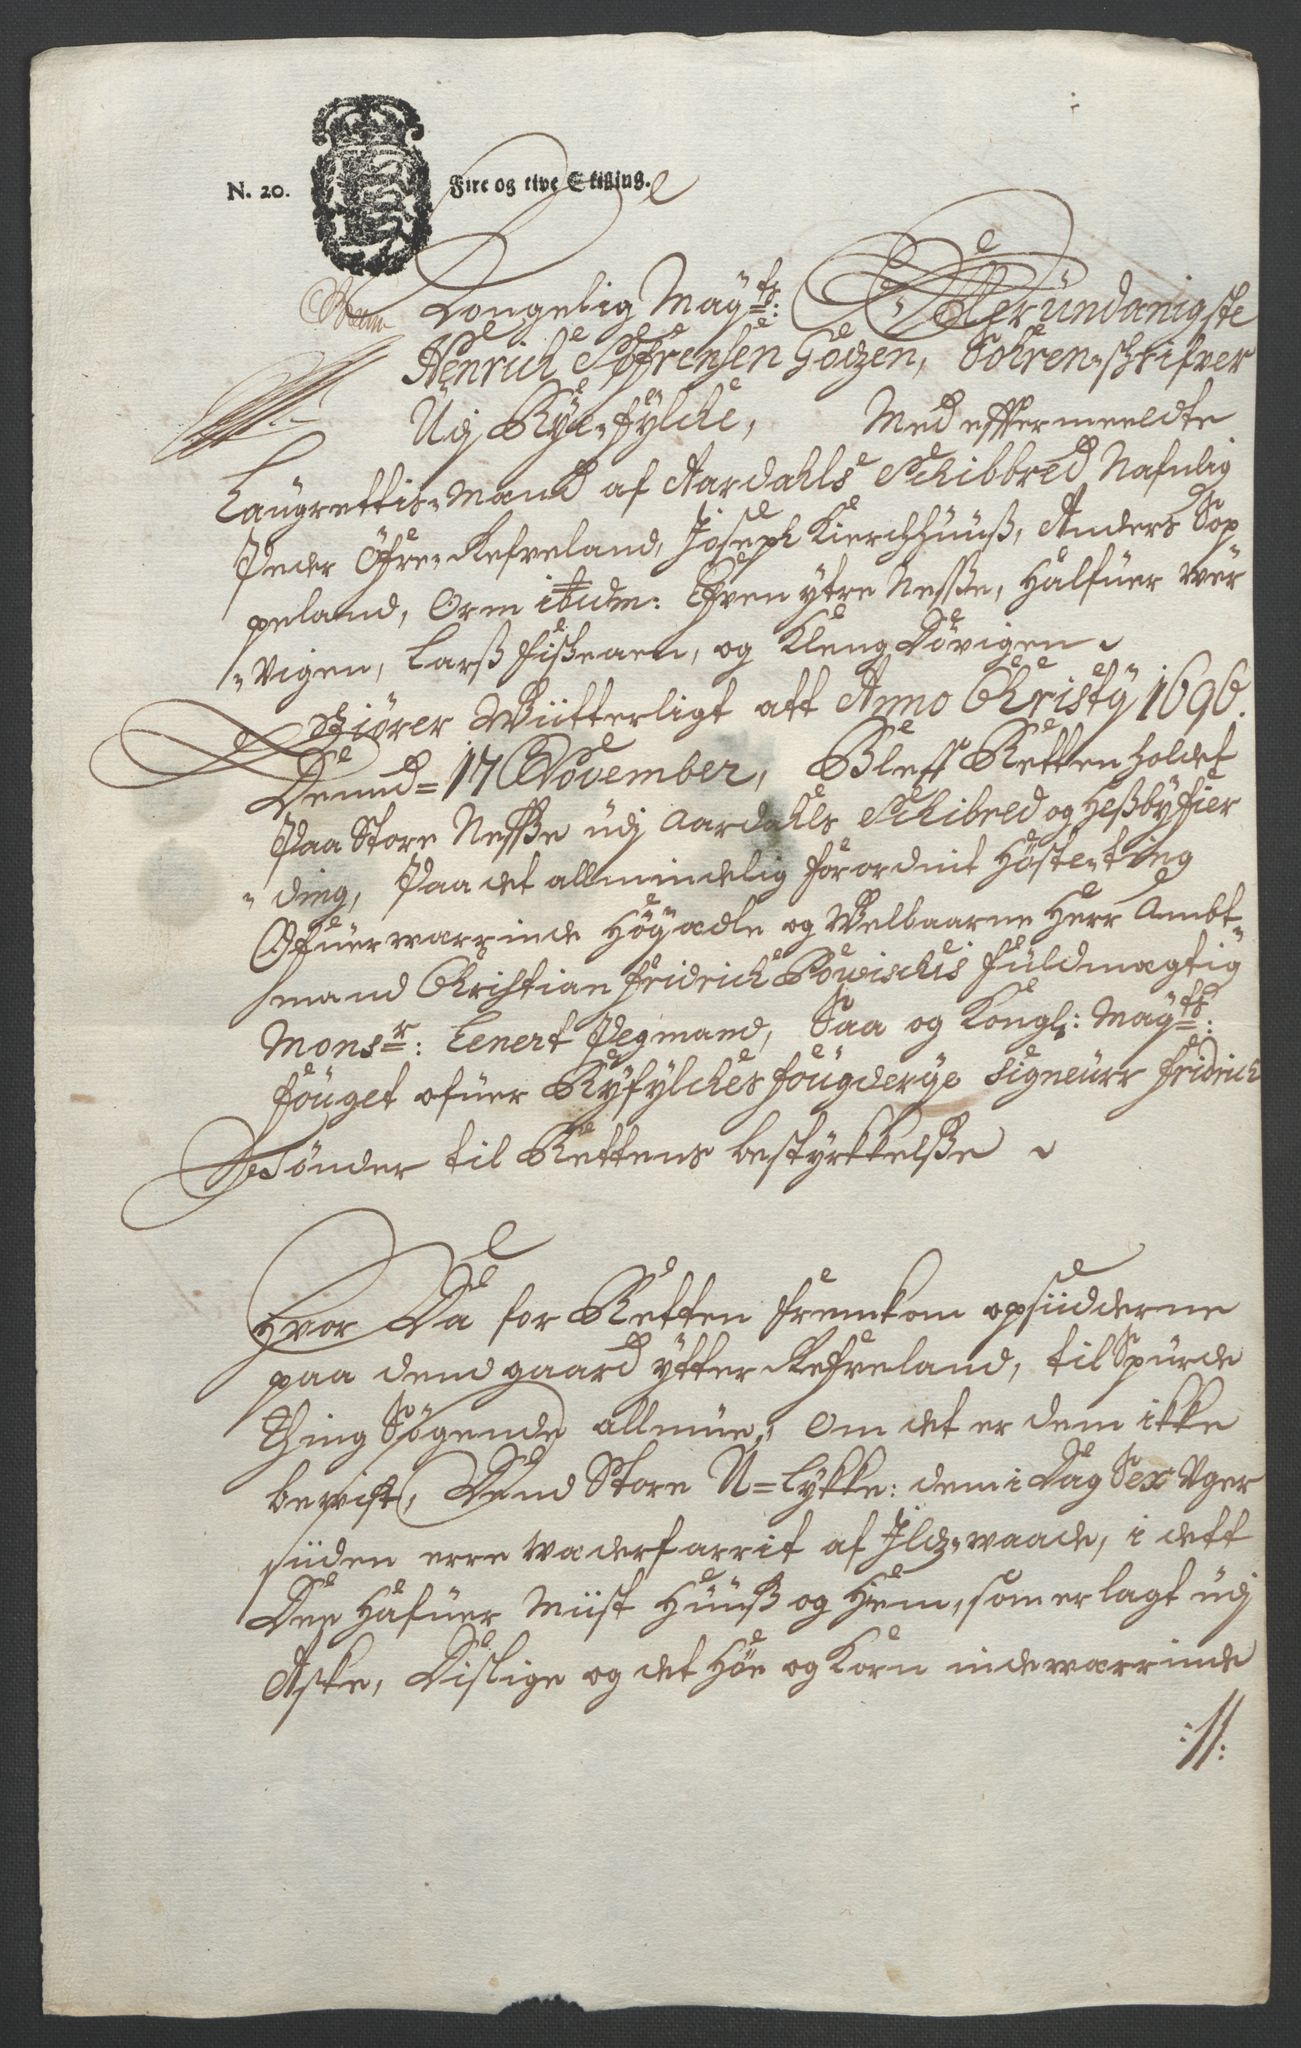 N. 20. Fire og tive Skilling.
Kongelig Maÿts: Alleründanigste
Henrich Søfrensen Godzen, Sohren-Schrifver
Udj Rÿe-fÿlcke, Med effter meeldte
Laugrettis-Mænd af Aardahls Schibbred Nafnlig
Peder Öfre-Refveland, Joseph Kierchhuuß, Anders Sop
peland, Orm ibidm: Sven ÿtre Nesße, Halfuer Wer
-vigen, Larß Fiskeaen, og Kleng Døvigen
Giörer Wiitterligt att Anno Christÿ 1696.
Dennd= 17 November, Bleff Retten holdet
Paa Store Nesße udj Aardahls Schibred og Heßbyfier
-ding, Paa det allmindelig forordnit Høste-ting
Ofuerwærrinde Högædle og Welbaarne Herr Ambt-
mand Christian Fridrich Powischis fuldmægtig
Monsr: Lenert Pegmand, Saa og Kongl: Maÿts:
fouget ofuer Rÿfÿlckes fougderye Signeurr Fridrich
Seönder til Rettens bestÿrkkelsße
Hvor Da for Retten fremkom opsiidderne
paa dend gaard ÿtter Refveland, til Spurde
Thing Søgende allmue, om det er dem ikke
bewist, Dend Store U=lykke: dem i Dag Sex Uger
siiden erre wederfarrit af Ildz-waade, i dett
Dee Hafuer Miist Huuß og Hiem, som er lagt udj
Aske, Dislige og det Høe og Korn inde warrinde
://: